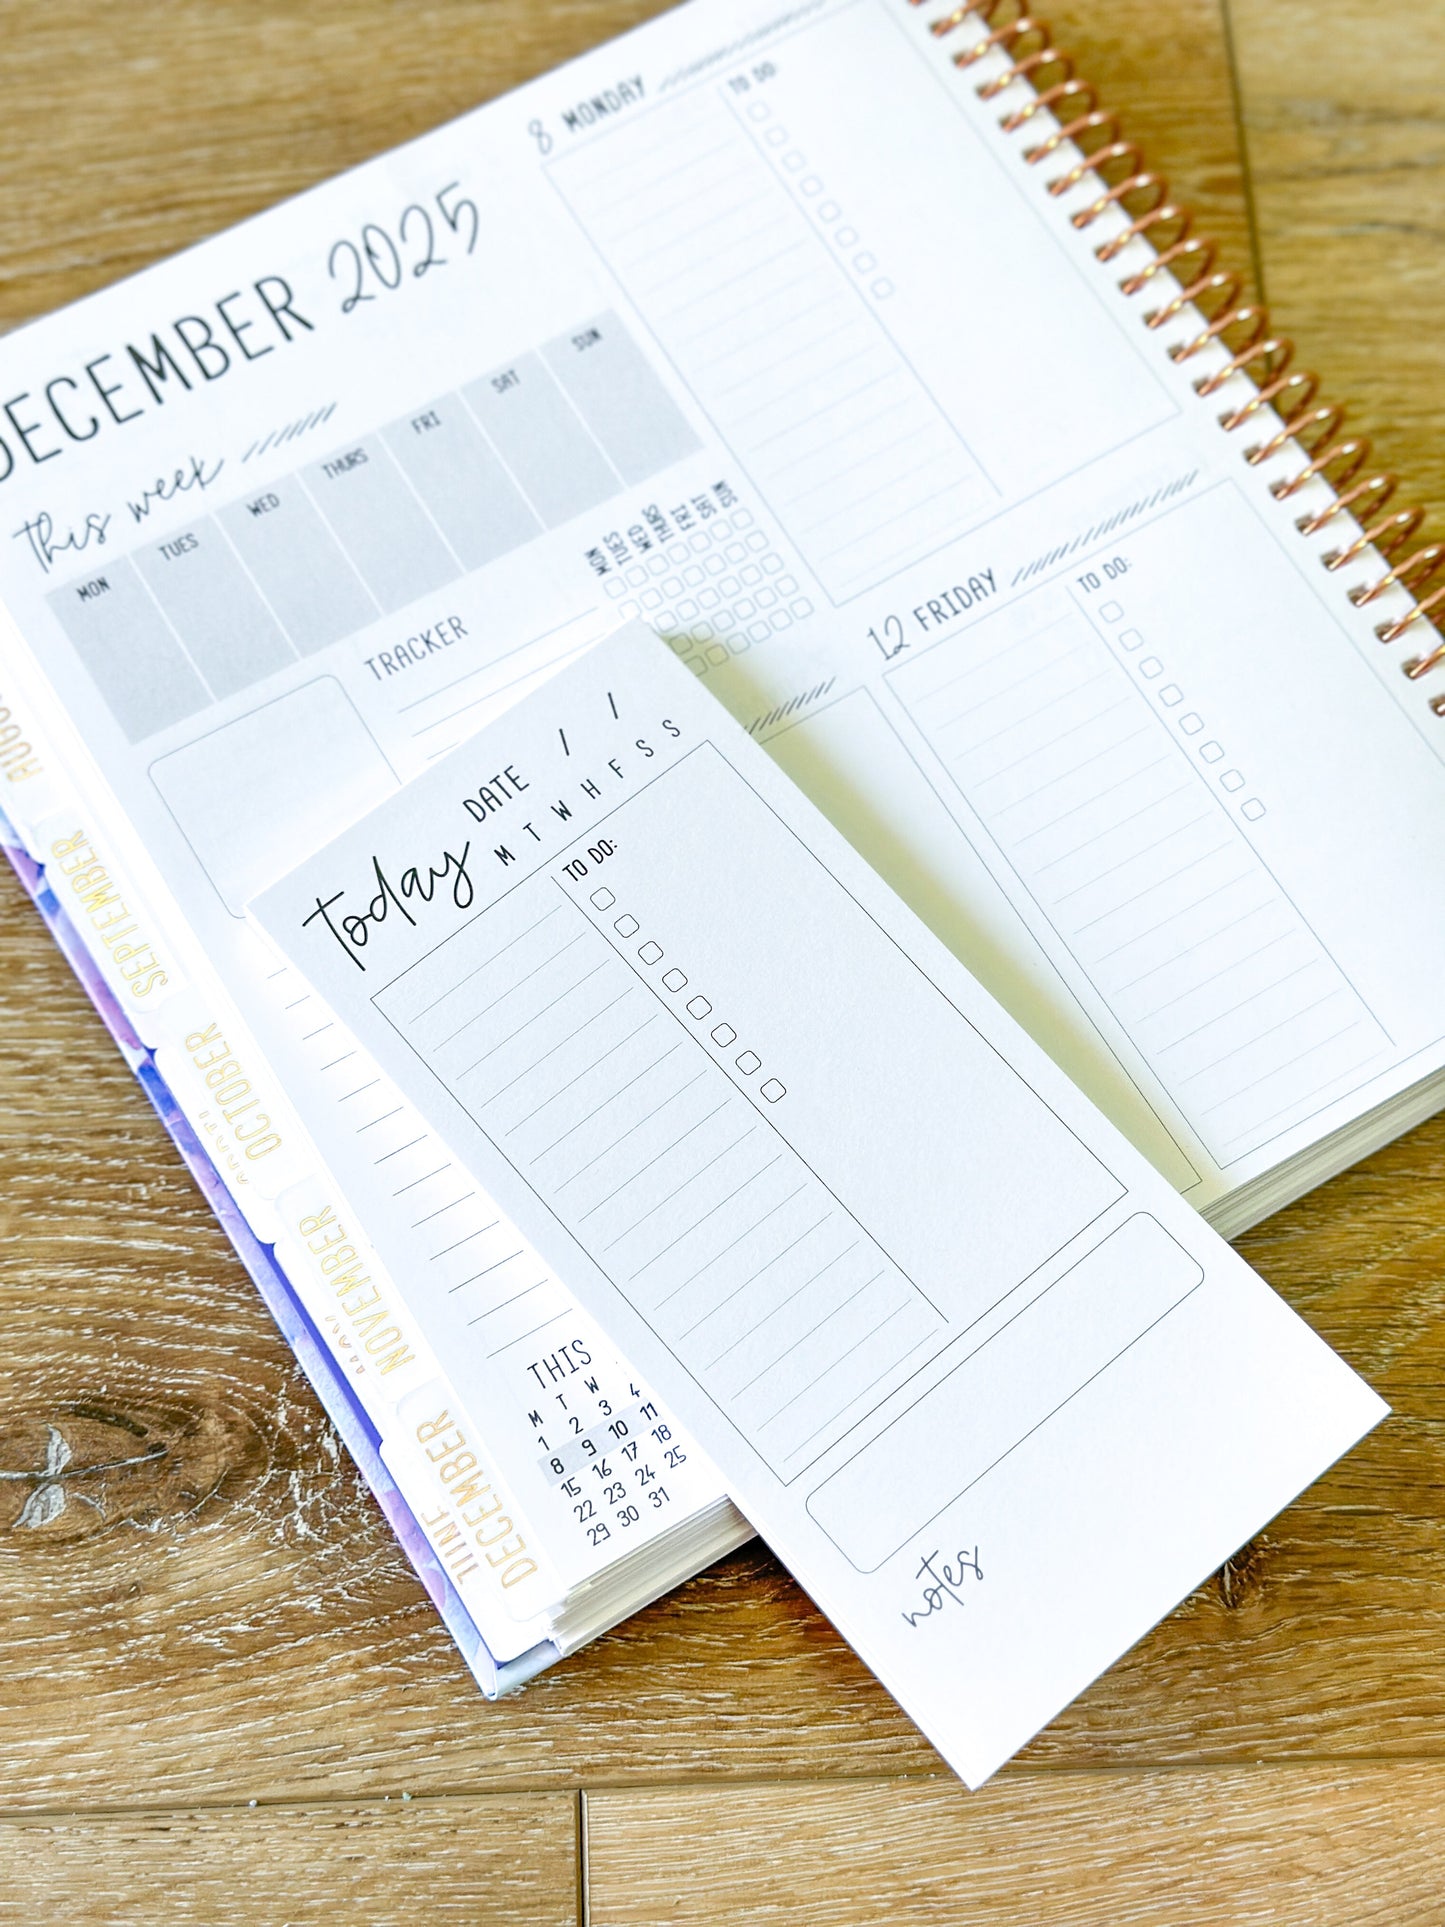 DECEMBER 2025
this week
MON TUES WED THURS FRI SAT SUN
TRACKER
MON TUES WED THURS FRI SAT SUN
8 MONDAY
TO DO:
12 FRIDAY
TO DO:
today
DATE / /
M T W H F S S
TO DO:
notes
THIS
M T W
1 2 3 4
8 9 10 11
15 16 17 18
22 23 24 25
29 30 31
SEPTEMBER
OCTOBER
NOVEMBER
DECEMBER